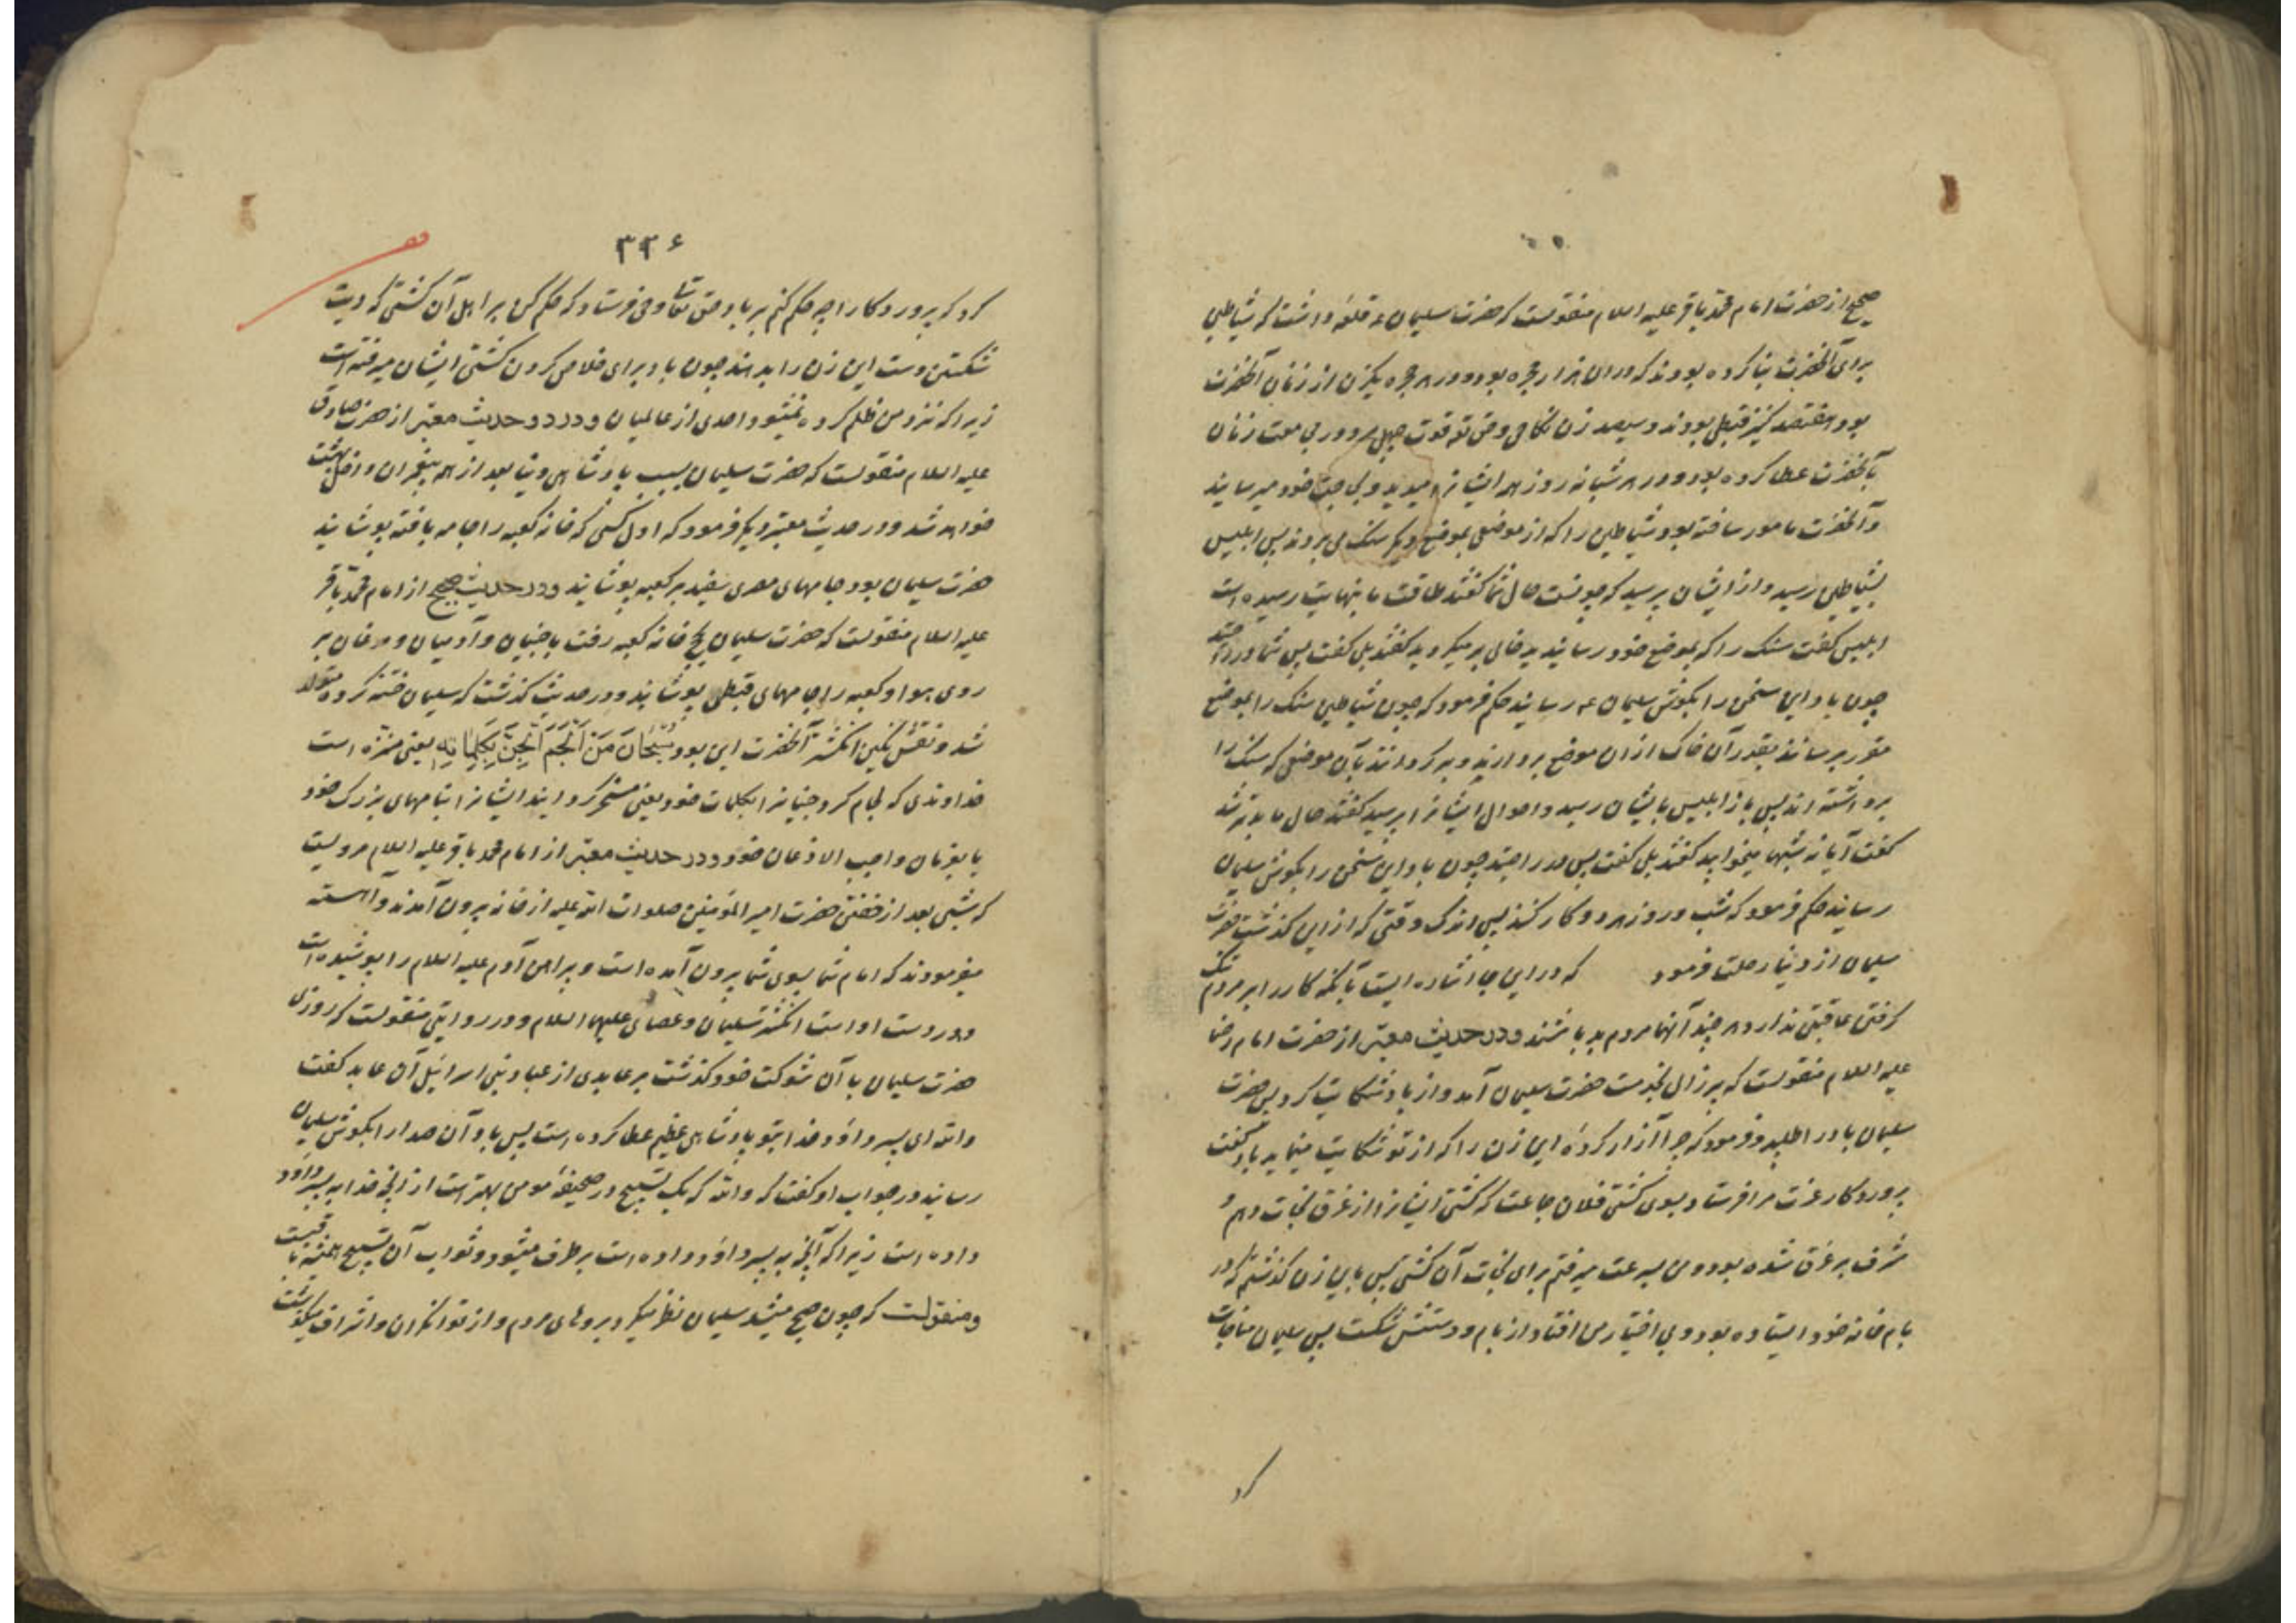 صحیح از حضرت امام محمد باقر علیه السلام منقولست که حضرت سلیمان ع قلعه داشت که شیاطین
برای آنحضرت بنا کرده بودند که در ان هزار حجره بود و در هر حجره یکزن از زنان آنحضرت
بود هفتصد کنیز قبطی بودند و سیصد زن نکاحی و حق تع قوت چهل مرد در مباشرت زنان
بآنحضرت عطا کرده بود و در هر شبانه روز همه ایشانرا میدید و بحاجت خود میرسانید
و آنحضرت مامور ساخته بود شیاطین را که از موضعی بموضع دیگر سنک می بردند پس ابلیس
بشیاطین رسید و از ایشان پرسید که چونست حال شما کفتند طاقت ما بنهایت رسیده است
ابلیس کفت سنک را که بموضع خود رسانیدید خالی برمیکردید کفتند بلی کفت پس شما در راحتید
چون باد این سخن را بکوش سلیمان ع رسانید حکم فرمود که چون شیاطین سنک را بموضع
مقرر برسانند بقدر آن خاک از ان موضع بردارند و برکردانند بآن موضعی که سنک را
برداشته اند پس باز ابلیس بایشان رسید و احوال ایشانرا پرسید کفتند حال ما بدتر شد
کفت آیا نه شبها میخوابید کفتند بلی کفت پس در راحتید چون باد این سخن را بکوش سلیمان
رسانید حکم فرمود که شب و روز هر دو کار کنند پس اندک وقتی که از این کذشت حضرت
سلیمان از دنیا رحلت فرمود که در این جا اشاره ایست بآنکه کار را بر مردم تنک
کرفتن عاقبتی ندارد هر چند آنها مردم بد باشند و در حدیث معتبر از حضرت امام رضا
علیه السلام منقولست که پیرزالی بخدمت حضرت سلیمان آمد و از باد شکایت کرد پس حضرت
سلیمان باد را طلبید و فرمود که چرا آزار کردهٔ این زن را که از تو شکایت مینماید باد کفت
پروردکار عزت مرا فرستاد بسوی کشتی فلان جماعت که کشتی ایشانرا از غرق نجات دهم و
مشرف بر غرق شده بود و من بسرعت میرفتم برای نجات آن کشتی پس باین زن کذشتم که در
بام خانه خود ایستاده بود و بی اختیار من افتاد از بام و دستش شکست پس سلیمان مناجات
کرد
۳۳۶
کرد که پروردکارا چه حکم کنم بر باد حق تعالی وحی فرستاد که حکم کن بر اهل آن کشتی که دیت
شکستن دست این زن را بدهند چون باد برای خلاصی کردن کشتی ایشان میرفته است
زیرا که نزد من ظلم کرده نمیشود احدی از عالمیان و در دو حدیث معتبر از حضرت صادق
علیه السلام منقولست که حضرت سلیمان بسبب پادشاهی دنیا بعد از همه پیغمبران داخل بهشت
خواهد شد و در حدیث معتبر دیکر فرمود که اول کسی که خانه کعبه را جامه بافته پوشانید
حضرت سلیمان بود جامهای مصری سفید بر کعبه پوشانید و در حدیث صحیح از امام محمد باقر
علیه السلام منقولست که حضرت سلیمان بحج خانه کعبه رفت با جنیان و آدمیان و مرغان بر
روی هوا و کعبه را جامهای قبطی پوشانید و در حدیث کذشت که سلیمان ختنه کرده متولد
شد و نقش نکین انکشتر آنحضرت این بود سُبْحَانَ مَنْ اَلْجَمَ الْجِنَّ بِکَلِمَاتِهِ یعنی منزه است
خداوندی که لجام کرد جنیانرا بکلمات خود یعنی مسخر کردانید ایشانرا بنامهای بزرک خود
یا بفرمان واجب الاذعان خود و در حدیث معتبر از امام محمد باقر علیه السلام مرویست
که شبی بعد از خفتن حضرت امیر المؤمنین صلوات الله علیه از خانه بیرون آمدند و آهسته
میفرمودند که امام شما بسوی شما بیرون آمده است و پیراهن آدم علیه السلام را پوشیده است
و در دست او است انکشتر سلیمان و عصای علیهما السلام و در روایتی منقولست که روزی
حضرت سلیمان با آن شوکت خود کذشت بر عابدی از عباد بنی اسرائیل آن عابد کفت
والله ای پسر داود خدا بتو پادشاهی عظیم عطا کرده است پس باد آن صدا را بکوش سلیمان
رسانید در جواب او کفت که والله که یک تسبیح در صحیفهٔ مومن بهتر است از آنچه خدا به پسر داود
داده است زیرا که آنچه به پسر داود داده است برطرف میشود و ثواب آن تسبیح همیشه باقیست
و منقولست که چون صبح میشد سلیمان نظر میکرد بروهای مردم و از توانکران و اشراف میکذشت